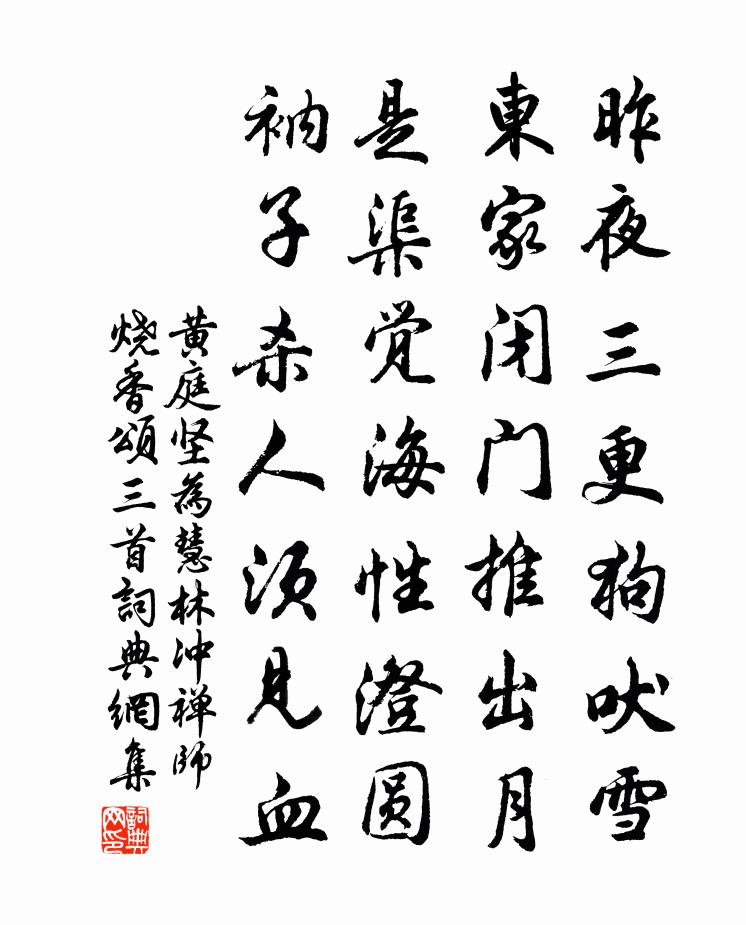 昨夜三更狗吠雪
東家闭门推出月
是渠觉海性澄圆
衲子杀人须见血
黄庭坚為慧林冲禅師
烧香頌三首詞典網集
詞典
网印